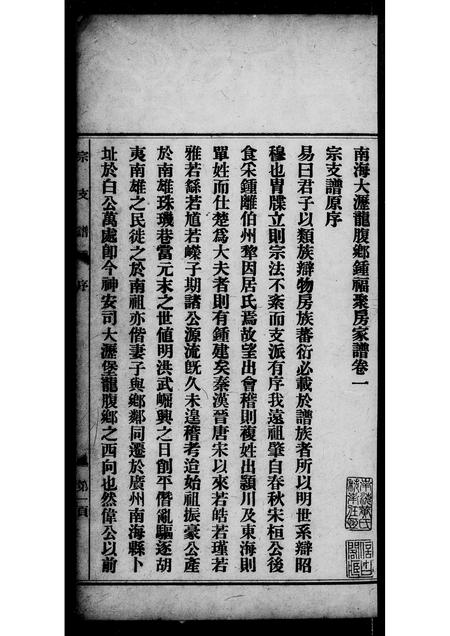 南海大瀝龍腹鄉鍾福聚房家譜卷一
宗支譜原序
易曰君子以類族辯物房族蕃衍必載於譜族者所以明世系辯昭
穆也胄牒立則宗法不紊而支派有序我遠祖肇自春秋宋桓公後
食采鍾離伯州犂因居氏焉故望出會稽則複姓出潁川及東海則
單姓而仕楚爲大夫者則有鍾建矣秦漢晉唐宋以來若皓若瑾若
雅若繇若嶸子期諸公源流旣久未遑稽考迨始祖振豪公產
於南雄珠璣巷當元末之世値明洪武崛興之日創平僭亂驅逐胡
夷南雄之民徙之於南祖亦偕妻子與鄉鄰同遷於廣州南海縣卜
址於白公萬處卽今神安司大瀝堡龍腹鄉之西向也然偉公以前
宗支譜
序
第一頁